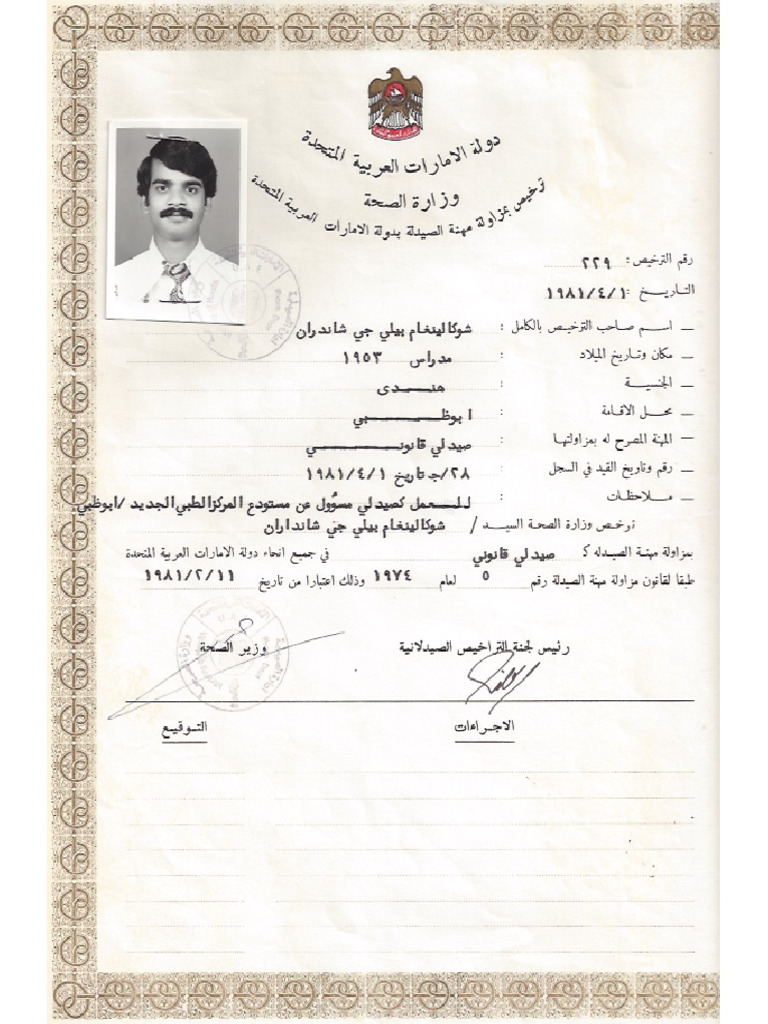 دولة الامارات العربية المتحدة
وزارة الصحة
ترخيص بمزاولة مهنة الصيدلة بدولة الامارات العربية المتحدة
رقم الترخيص : ٢٢٩
التاريخ : ١٩٨١/٤/١
ــ اسم صاحب الترخيص بالكامل : شوكالينغام بيلي جي شاندران
ــ مكان وتاريخ الميلاد : مدراس ١٩٥٣
ــ الجنسيـة : هنـدى
ــ محـل الاقامة : ابوظـبي
ــ المهنة المصرح له بمزاولتها : صيدلي قانونـي
ــ رقم وتاريخ القيد في السجل : ٢٨/ج تاريخ ١٩٨١/٤/١
ــ مـلاحظـات : للـعمل كصيدلي مسؤول عن مستودع المركز الطبي الجديد /ابوظبي
ترخـص وزارة الصحة السيـد / شوكالينغام بيلي جي شانداران
بمزاولة مهنـة الصيـدله كـ صيدلي قانوني في جميع انحاء دولة الامارات العربية المتحدة
طبقا لقانون مزاولة مهنة الصيدلة رقم ٥ لعام ١٩٧٤ وذلك اعتبارا من تاريخ ١٩٨١/٢/١١
رئيس لجنة التراخيص الصيدلانية وزير الصحة
الاجـراءات التـوقيـع